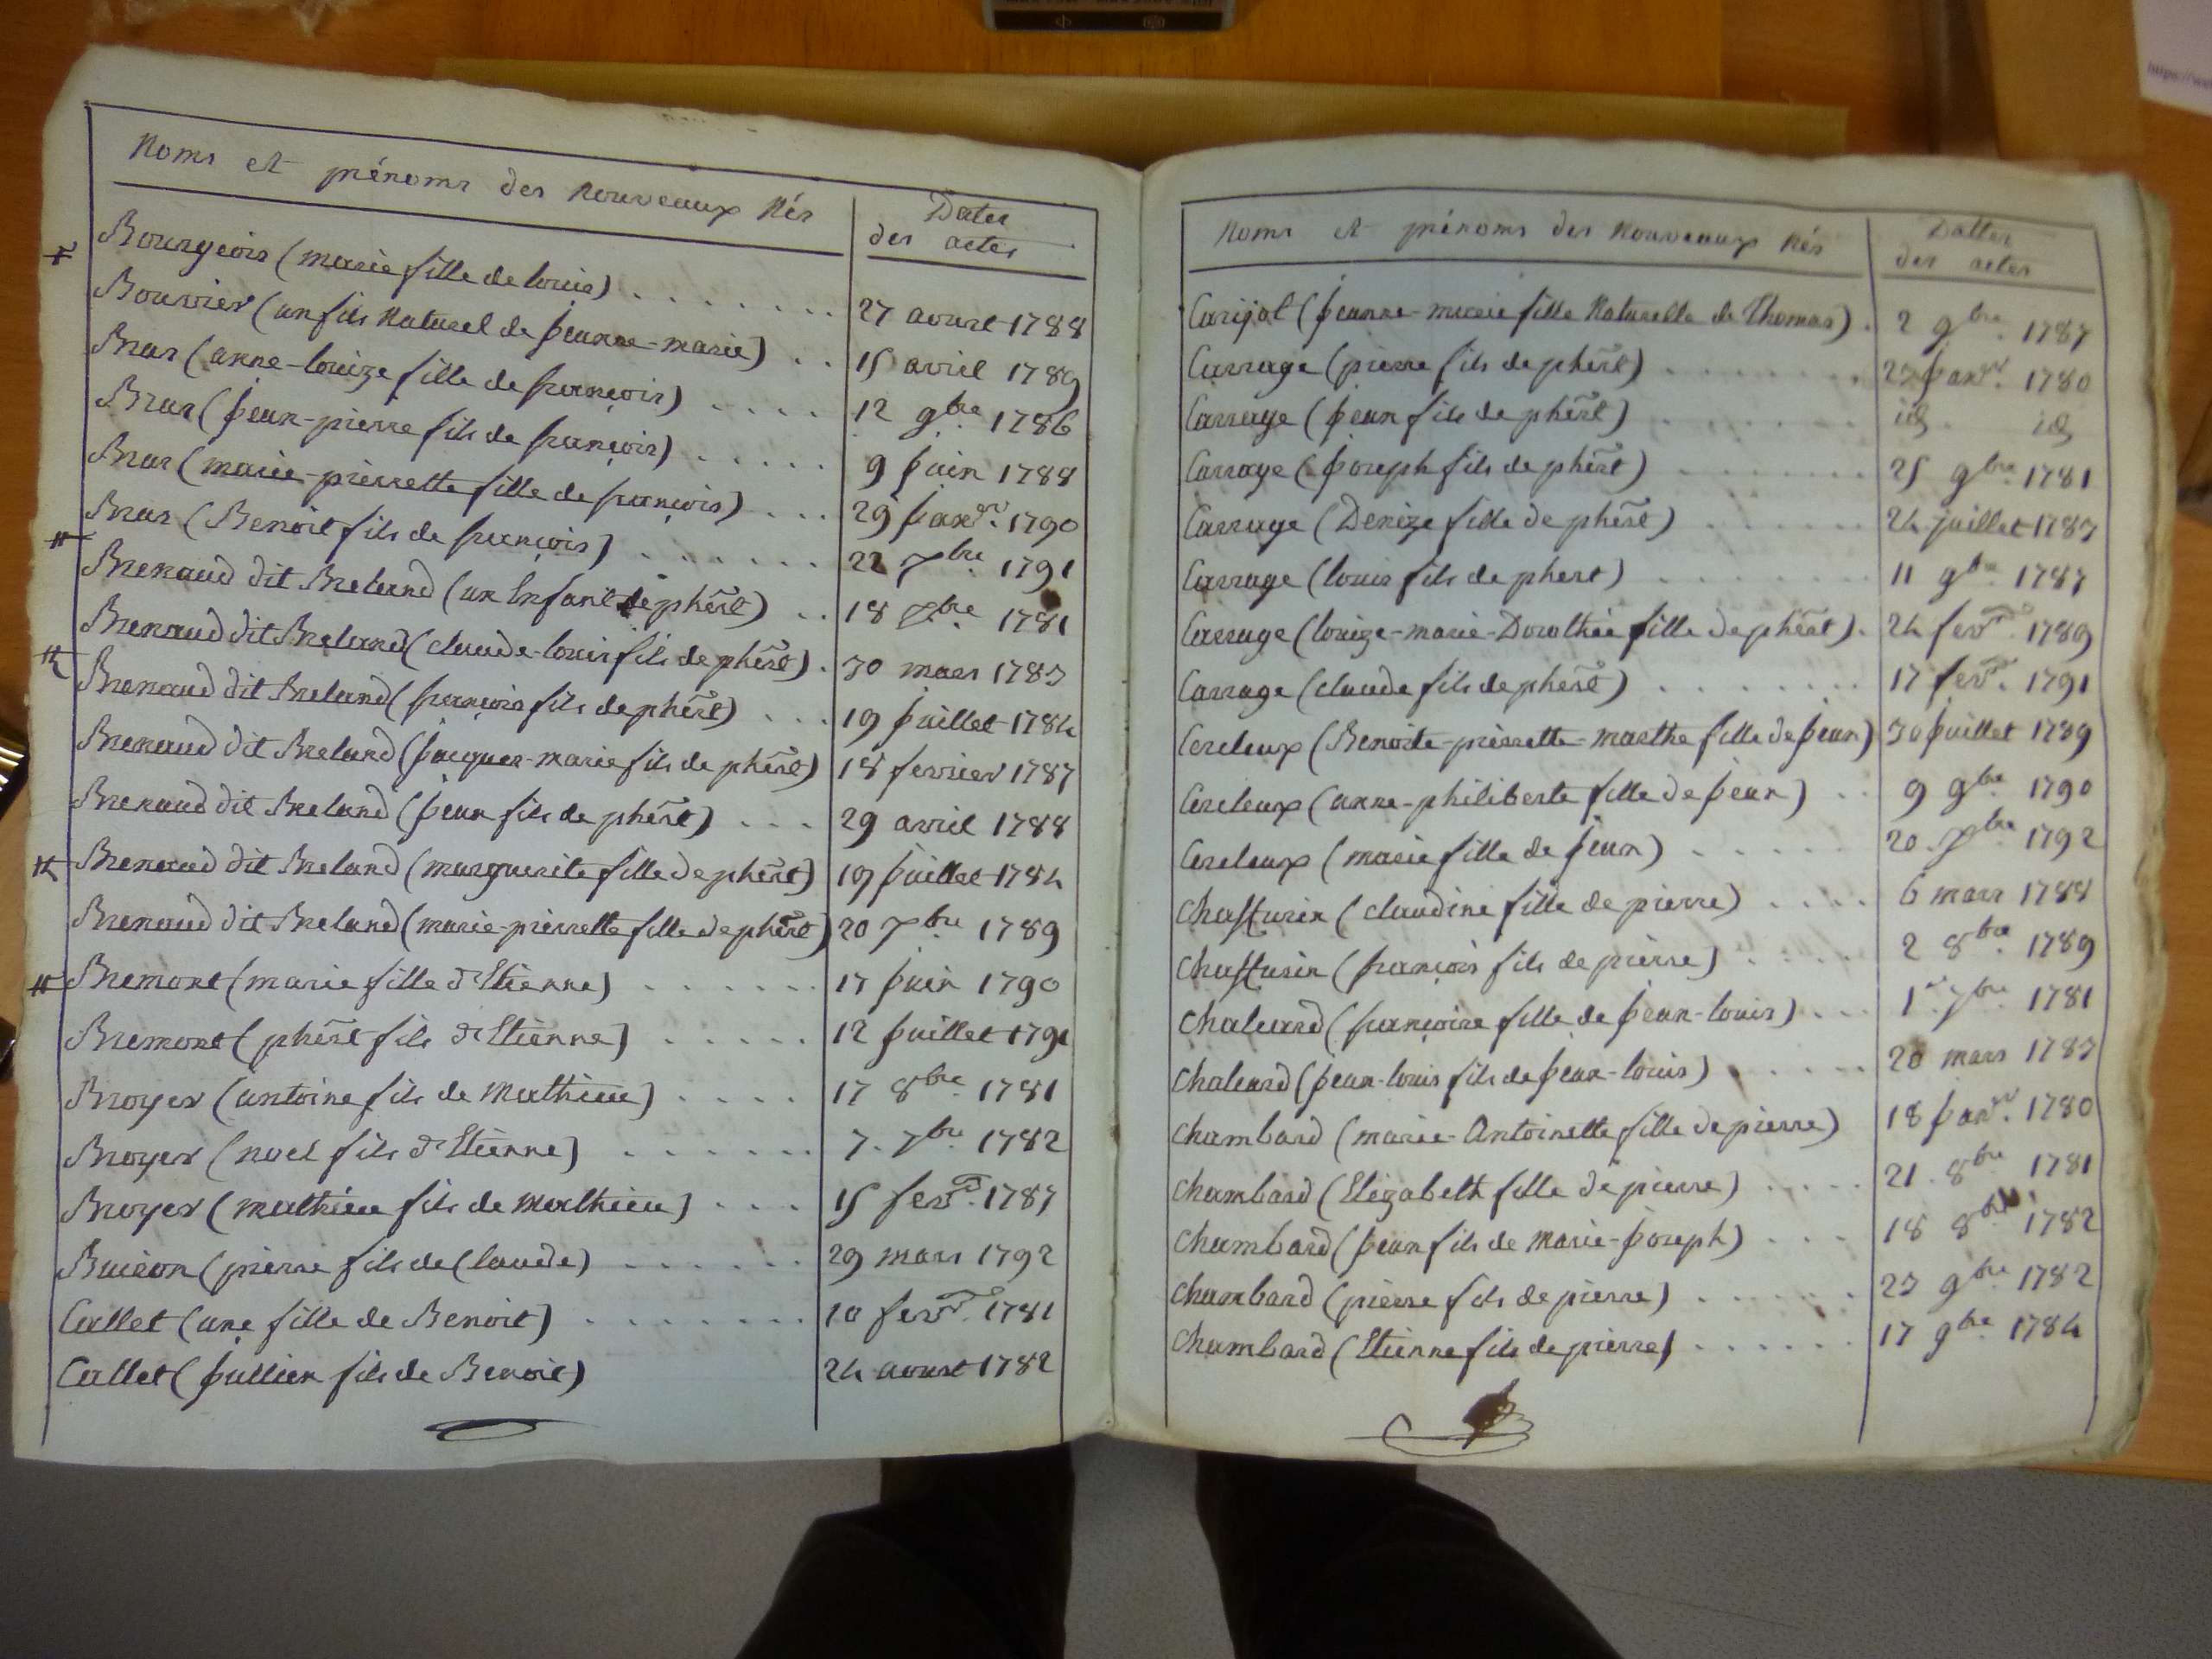 Noms et prénoms des nouveaux nés
Dates
des actes
Bourgeois (marie fille de louis) . . . . . . . 27 aoust 1788
Bouvier (un fils naturel de jeanne-marie) . . 15 avril 1789
Bras (anne-louize fille de françois) . . . . 12 9bre 1786
Bras (jean-pierre fils de françois) . . . . . 9 juin 1788
Bras (marie-pierrette fille de françois) . . . 29 janvr. 1790
Bras (Benoit fils de françois) . . . . . . 22 7bre 1791
Brenaud dit Breland (un Enfant de phêrt) . . 18 7bre 1781
Brenaud dit Breland (claude-louis fils de phêrt) . 30 mars 1783
Brenaud dit Breland (françois fils de phêrt) . . . 19 juillet 1784
Brenaud dit Breland (jacques-marie fils de phêrt) 18 fevrier 1787
Brenaud dit Breland (jean fils de phêrt) . . . 29 avril 1788
Brenaud dit Breland (marguerite fille de phêrt) 19 juillet 1784
Brenaud dit Breland (marie-pierrette fille de phêrt) 20 7bre 1789
Bremont (marie fille d'Etienne) . . . . . . 17 juin 1790
Bremont (phêrt fils d'Etienne) . . . . . 12 juillet 1791
Broyer (antoine fils de Mathieu) . . . . 17 8bre 1781
Broyer (noel fils d'Etienne) . . . . . . . 7. 7bre 1782
Broyer (mathieu fils de Mathieu) . . . . 15 fevr. 1787
(pierre fils de Claude) . . . . . . 29 mars 1792
Callet (une fille de Benoit) . . . . . . . 10 fevr. 1781
Callet (jullien fils de Benoit) 24 aoust 1782
Noms et prénoms des nouveaux nés
Dattes
des actes
Carijot (jeanne-marie fille naturelle de Thomas) . 2 9bre 1787
Carrage (pierre fils de phêrt) . . . . . . . 23 janvr. 1780
Carrage (jean fils de phêrt) . . . . . . . id. id
Carrage (joseph fils de phêrt) . . . . . . . 25 9bre 1781
Carrage (Denize fille de phêrt) . . . . . . 24 juillet 1783
Carrage (louis fils de phert) . . . . . . . 11 9bre 1787
Carrage (louize-marie-Dorothée fille de phêrt) . 24 fevr. 1789
Carrage (claude fils de phêrt) . . . . . . . 17 fevr. 1791
Cercleux (Benoite-pierrette-marthe fille de jean) 30 juillet 1789
Cercleux (anne-philiberte fille de jean) . . 9 9bre 1790
Cercleux (marie fille de jean) . . . . . 20 7bre 1792
(claudine fille de pierre) . . . . 6 mars 1788
(françois fils de pierre) . . . . . 2 8bre 1789
Chaleard (françoise fille de jean-louis) . . . 1er 7bre 1781
Chaleard (jean-louis fils de jean-louis) . . . . . 20 mars 1783
Chambard (marie-Antoinette fille de pierre) 18 janvr. 1780
Chambard (Elizabeth fille de pierre) . . . . . 21. 8bre 1781
Chambard (jean fils de Marie-joseph) . . . . 18 8bre 1782
Chambard (pierre fils de pierre) . . . . . . 23 9bre 1782
Chambard (Etienne fils de pierre) . . . . . . 17 9bre 1784